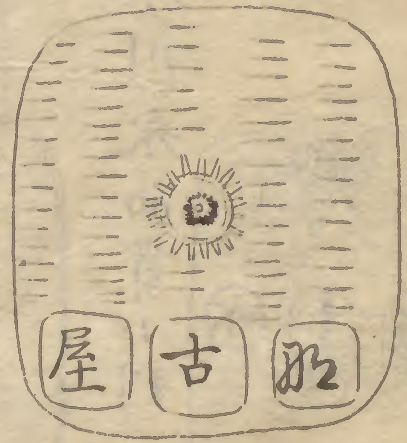 那古屋